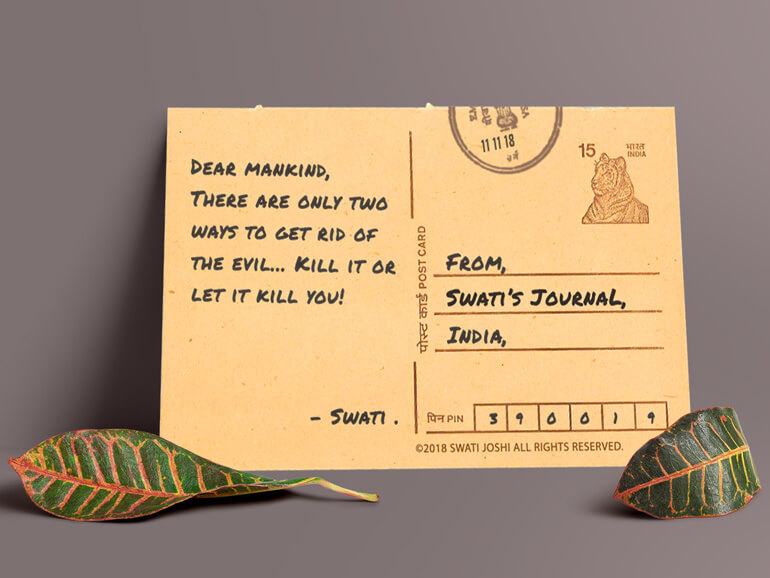 DEAR MANKIND,
THERE ARE ONLY TWO
WAYS TO GET RID OF
THE EVIL... KILL IT OR
LET IT KILL YOU!
- SWATI .
11 11 18
15 भारत
INDIA
पोस्ट कार्ड POST CARD
FROM,
SWATI'S JOURNAL,
INDIA,
पिन PIN 3 9 0 0 1 9
©2018 SWATI JOSHI ALL RIGHTS RESERVED.